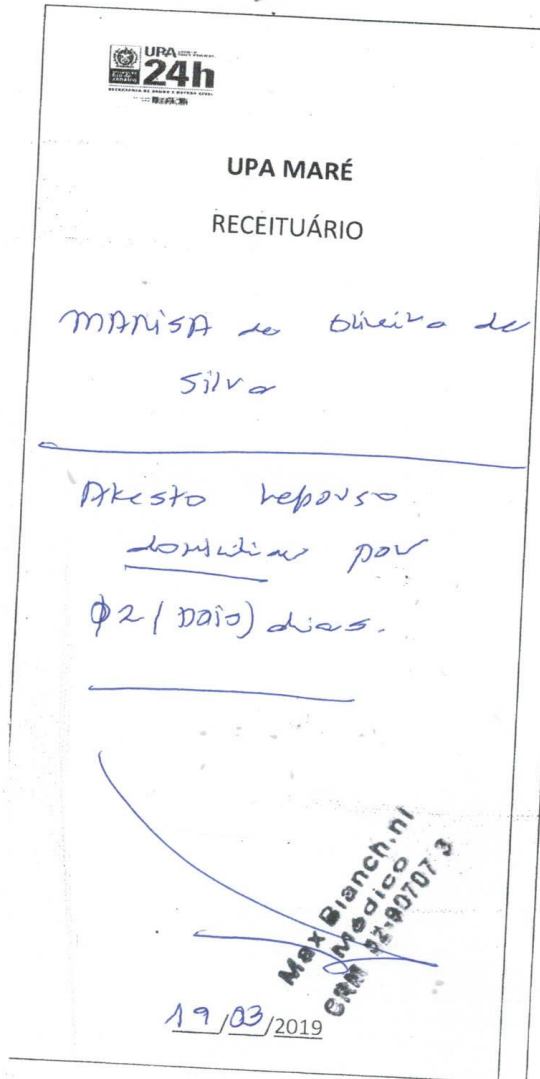 UPA
24h
SECRETARIA DE SAÚDE E DEFESA CIVIL
UPA MARÉ
RECEITUÁRIO
MARISA de Oliveira de
Silva
Atesto repouso
domiciliar por
02 (DOIS) dias.
Max Bianch.ni
Médico
CRM 52-90707 3
19/03/2019